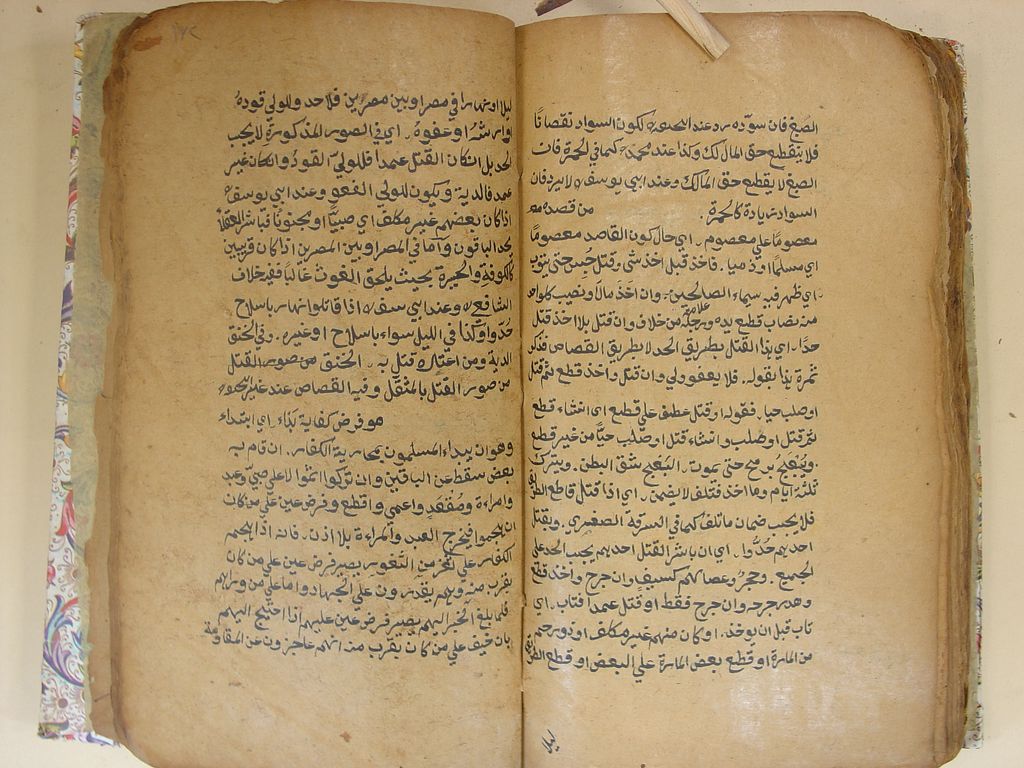 الصبغ فان سوّده رد عند ابي حنيفة لكون السواد نقصانًا
فلا ينقطع حق المالك وكذا عند محمد كما في الحمرة فان
الصبغ لا يقطع حق المالك وعند ابي يوسف لا يرد فان
السواد زيادة كالحمرة . من قصده
معصومًا على معصوم . اي حال كون القاصد معصومًا
اي مسلمًا او ذميا . فاخذ قبل اخذ شئ وقتل حُبس حتى يتوب
اي ظهر فيه سيماء الصالحين . وان اخذ مالا ونصيب كل واحد
منه نصاب قطع يده ورجله من خلاف وان قتل بلا اخذ قتل
حدًا . اي هذا القتل بطريق الحد لا بطريق القصاص فذكر
ثمرة هذا بقوله . فلا يعفو ولي وان قتل واخذ قطع ثم قتل
او صلب حيا . فقوله او قتل عطف على قطع اي ان شاء قطع
ثم قتل او صلب وان شاء قتل او صلب حيًا من غير قطع
ويُبْعَج برمح حتى يموت . البَعج شق البطن . ويترك
ثلثة ايام وما اخذ فتلف لا يضمن . اي اذا قتل قاطع الطريق
فلا يجب ضمان ما تلف كما في السرقة الصغرى . وبقتل
احدهم حُدُّوا . اي ان باشر القتل احدهم يجب الحد على
الجميع . وحجر وعصا لهم كسيف وان جرح واخذ قطع
وهدر جرحه وان جرح فقط او قتل عمدا فتاب . اي
تاب قبل ان يوخذ . او كان منهم غير مكلف او ذو رحم محرم
من المارة او قطع بعض المارة على البعض او قطع الطريق
ليلا
ليلا او نهارا في مصر او بين مصرين فلا حد وللولي قوده
او ارشه او عفوه . اي في الصور المذكورة لا يجب
الحد بل ان كان القتل عمدا فللوليّ القود وان كان غير
عمد فالدية ويكون للولي العفو وعند ابي يوسف
اذا كان بعضهم غير مكلف اي صبيًا او مجنونًا فباشر العقلاء
يحد الباقون واما في المصر او بين المصرين اذا كان قريبين
كالكوفة والحيرة بحيث يلحق الغوث غالبًا ففيه خلاف
الشافعي وعند ابي يوسف اذا قاتلوا نهارا بالسلاح
حُدّوا وكذا في الليل سواء بالسلاح او غيره . وفي الخنق
الدية ومن اعتاده قتل به . الخنق من صور القتل
من صور القتل بالمثقل وفيه القصاص عند غير ابي حنيفة
هو فرض كفاية بداء . اي ابتداء
وهو ان يبداء المسلمون بمحاربة الكفار . ان قام به
بعض سقط عن الباقين وان تركوا اثموا لا على صبيّ وعبد
وامراءة ومُقْعَد واعمى واقطع وفرض عين على من كان
ان هجموا فيخرج العبد والمراءة بلا اذن . فانه اذا هجم
الكفار على ثغر من الثغور يصير فرض عين على من كان
يقرب منه وهم يقدرون على الجهاد واما على من وراءهم
فلما يبلغ الخبر اليهم يصير فرض عين عليهم اذا احتيج اليهم
بان خيف على من كان يقرب منه انهم عاجزون عن المقاومة